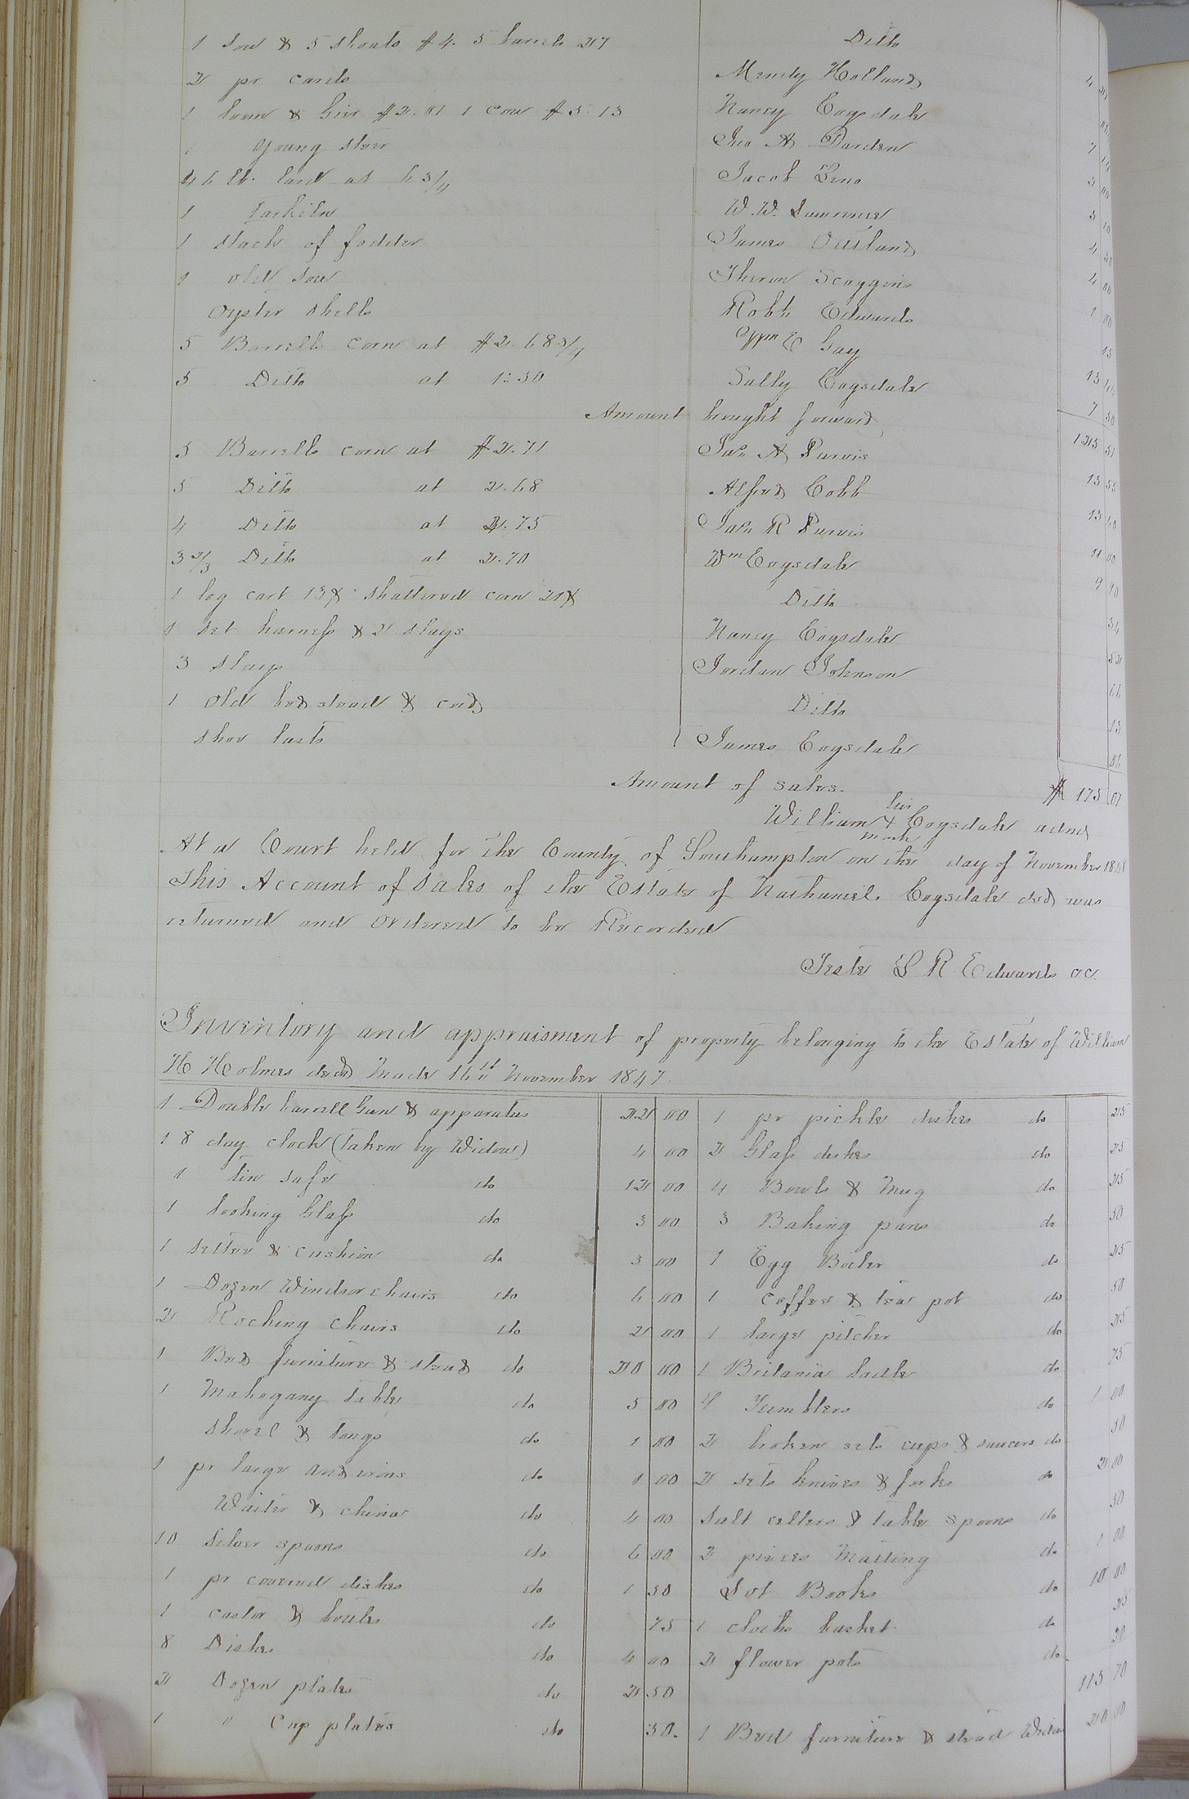 1 Sow & 5 shoats $4. 5 Ditto
2 pr cards Mendy Holland
1 loom & Geir 1 Cow $5.13 Nancy Cogsdale
1 Young steer Jno A Darden
46 lb. lard at 6 3/4 Jacob
1 W. W. Summner
1 stack of fodder James Outland
1 old sow Theron Scoggins
Oyster shells Robt Edwards
5 Barrells corn at $2.68 3/4 Wm E Gay
5 Ditto at 1.50 Sally Cogsdale
Amount bought forward
5 Barrells corn at $2.71 Jas A Purvis
5 Ditto at 2.68 Alfred Cobb
4 Ditto at 2.75 Jas R Purvis
3 2/3 Ditto at 2.70 Wm Cogsdale
1 log cart 13¢ shattered corn 21¢ Ditto
1 set harness & 2 slays Nancy Cogsdale
3 slays Jordan Johnson
1 Old bedstead & cord Ditto
shoe lasts James Cogsdale
Amount of sales. $ 175
William his X mark Cogsdale admr
At a Court held for the County of Southampton on the day of November
This Account of Sales of the Estate of Nathaniel Cogsdale decd was
returned and Ordered to be Recorded
Teste L R Edwards cc.
Inventory and appraisment of property belonging to the Estate of William
H Holmes decd Made 16th November 1847
1 Double barrell Gun & apparatus 22 00 1 pr pickle dishes do 25
1 8 day clock (taken by Widow) 4 00 2 Glass dishes do 25
1 tin safe do 12 00 4 Bowls & Mug do 25
1 Looking Glass do 3 00 3 Baking pans do 50
1 settee & cushion do 3 00 1 Egg Boiler do 25
1 Dozen Windsor chairs do 6 00 1 coffee & tea pot do 50
2 Rocking Chairs do 2 00 1 large pitcher do 25
1 Bed furniture & stead do 20 00 1 Britania ladle do 75
1 Mahogany table do 5 00 4 Tumblers do 1 00
Shovel & tongs do 1 00 2 broken sets cups & saucers do 50
1 pr large and irons do 1 00 2 sets knives & forks do 2 00
Waiter & china do 4 00 Salt cellers & table spoons do 50
10 Silver spoons do 6 00 2 pieces Matting do 1 00
1 pr covered dishes do 1 50 Lot Books do 10 00
1 castor & bottles do 75 1 cloths basket do 25
8 Dishes do 4 00 2 flower pots do 20
2 Dozen plates do 2 50 115 70
1 " Cup plates do 30. 1 Bed furniture & stead Widow 20 00